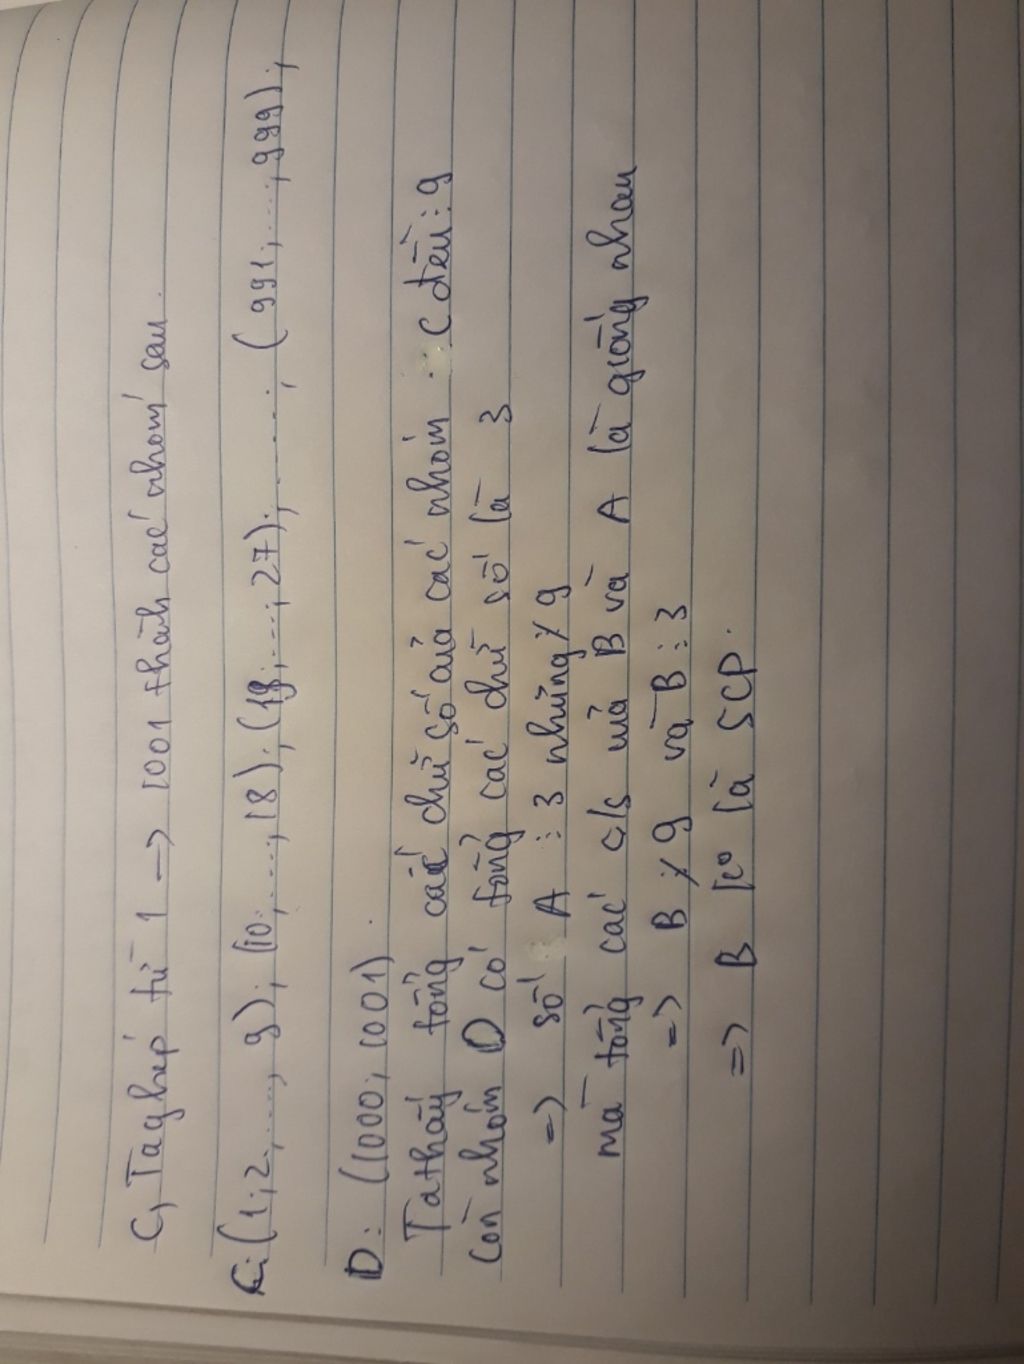 C, Ta ghép từ 1 → 1001 thành các nhóm sau.
C: (1; 2, ..., 9); (10; ..., 18); (19; ...; 27); ......; (991, ..., 999);
D: (1000; 1001).
Ta thấy tổng các chữ số của các nhóm C đều ⋮ 9
Còn nhóm D có tổng các chữ số là 3
=> số A ⋮ 3 nhưng ⋮̸ 9
mà tổng các c/s của B và A là giống nhau
=> B ⋮̸ 9 và B ⋮ 3
=> B ko là SCP.